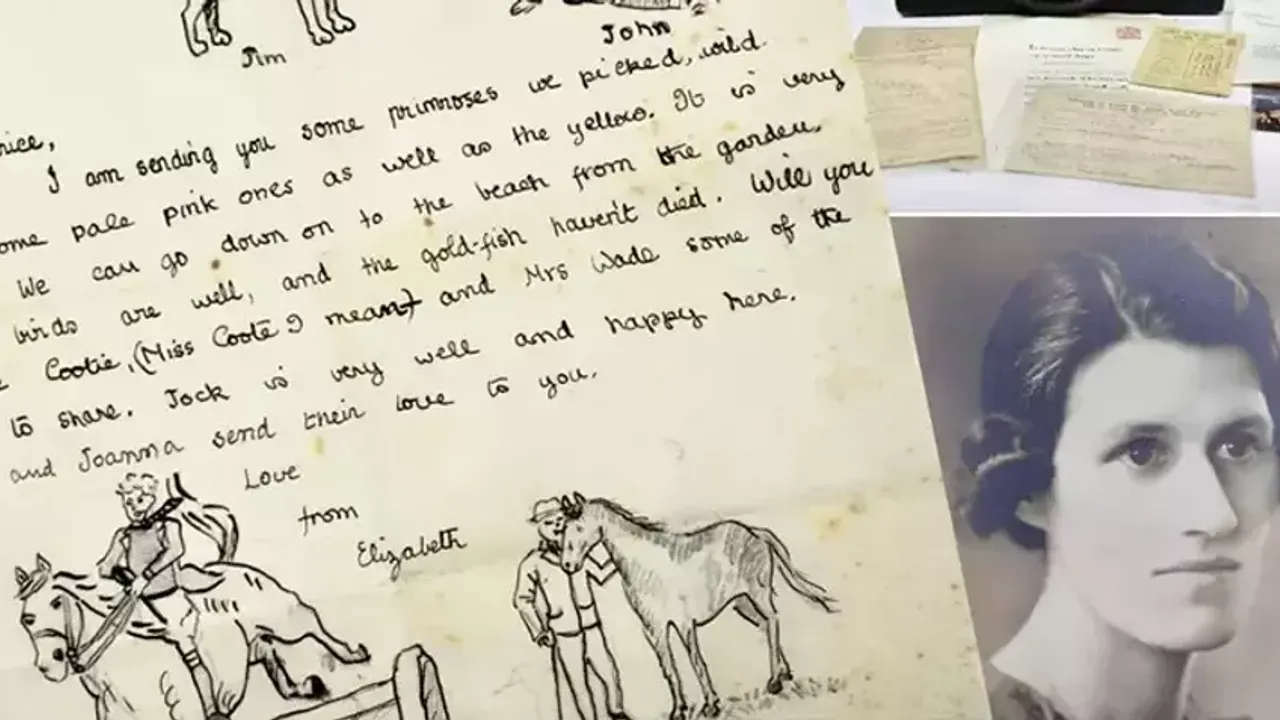 Jim
John
I am sending you some primroses we picked, wild.
pale pink ones as well as the yellow. It is very
We can go down on to the beach from the garden.
birds are well, and the gold-fish haven't died. Will you
Cootie, (Miss Coote I meant) and Mrs Wade some of the
to share. Jock is very well and happy here.
and Joanna send their love to you.
Love
from
Elizabeth